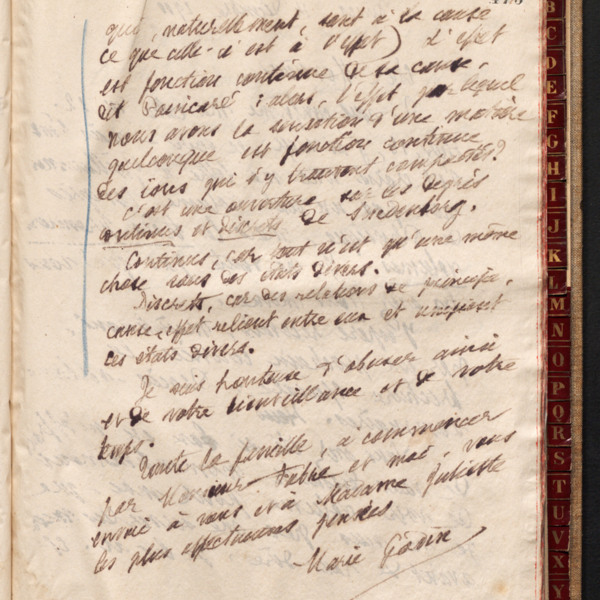 qui, naturellement, sont à la cause
ce que celle-ci est à l'effet) L'effet
est fonction continue de sa cause,
dit Poincaré : alors, l'effet par lequel
nous avons la sensation d'une matière
quelconque est fonction continue
des ions qui s'y trouvent comparés?
C'est une ouverture sur les degrés
continus et discrets de Swedenborg.
Continus, car tout n'est qu'une même
chose sous des états divers.
Discrets, car des relations de principe,
cause, effet relient entre eux et unissent
ces états divers.
Je suis honteuse d'abuser ainsi
et de votre bienveillance et de votre
temps.
Toute la famille, à commencer
par Monsieur Fabre et moi, vous
envoie à vous et à Madame Juliette
les plus affectueuses pensées
Marie Godin
B
C
D
E
F
G
H
I
J
K
L
M
N
O
P
Q
R
S
T
U
V
X
Y